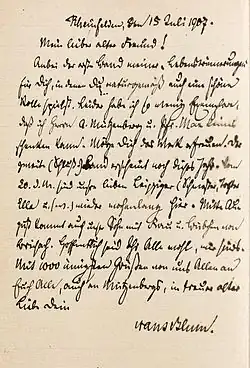 Rheinfelden, den 15 Juli 1907.
Mein lieber alter Freund!
Anbei der erste Band meiner „Lebenserinnerungen"
für Dich, in denen Du naturgemäß auch eine schöne
Rolle spielst. Leider habe ich so wenig Exemplare,
daß ich Herrn A. Mützenberg u. Max keines
schenken kann. Möge Dich das Werk erfreuen. Der
zweite (Schluß) Band erscheint noch dieses Jahr. Vom
20. d. M. sind unsre lieben Leipziger (Schwester, Tochter
Elle u. s. w.) wieder wochenlang hier. Mitte Au-
gust kommt auch unser Sohn mit Frau u. Bübchen von
Hoffentlich seid Ihr Alle wohl, wie wir.
Mit 1000 innigsten Grüßen von uns Allen an
Euch Alle, auch an Mützenbergs, in treuer alter
Liebe Dein
Hans Blum.